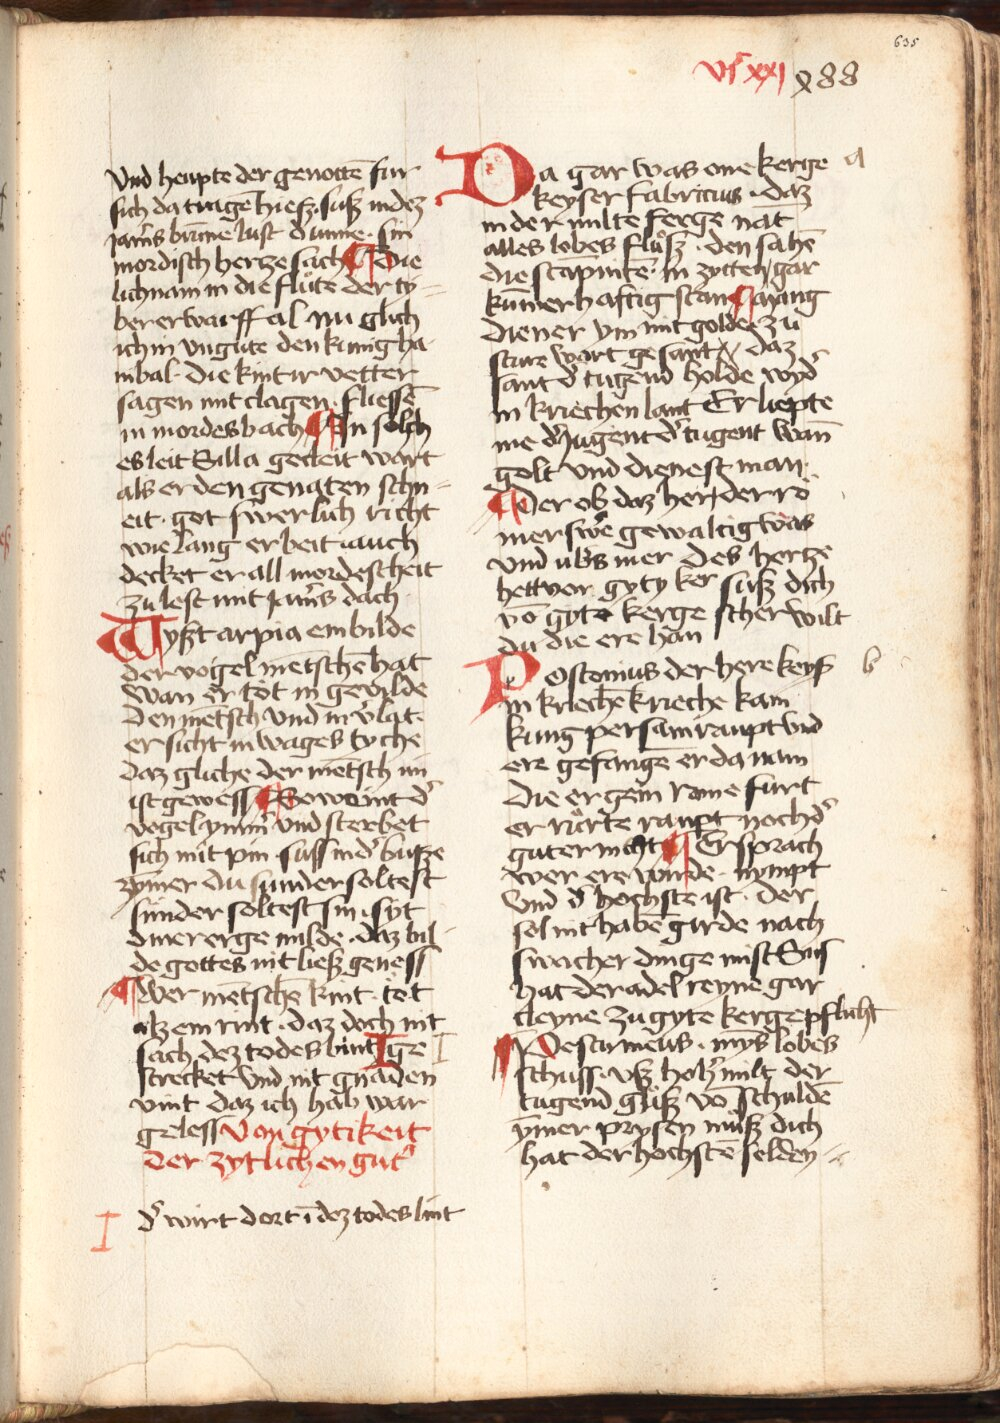 635
VI XXI x88
Vnd heupte der genottē fur
sich da tragē hiesz. susz in dez
jam's brūne lust dūnne. sin
mordisch hertze sach Die
lichnam in die flute der ty=
ber er warff al nu glich
ich in vngute den kunig ha
nibal. die kint ir vetter
sagen mit clagen. fliessē
in mordes bach In solch
es leit Silla gecleit wart
als er den genaten schn=
eit. got swerlich richt
wie lang er beit. auch
decket er all mordescheit
zu lest mit jam's dach
Wyszt arpia em bilde
der vogel mētschē hat
wan er tot in gevilde
den mētsch vnd in v'lat.
er sicht in wages tyche
daz gliche der mētsch im
ist gewess So wint d'
vogel ymm' vnd sterbet
sich mit pin. suss in d' busze
ymer du sunder soltest
sunder soltest sin. syt
diner erge milde. daz bil=
de gottes nit liesz geness
Wer mētschē kint. tot
alz ein rint. daz doch nit
sach dez todes bint I ge I
strecket vnd nit gnaden
vint daz ich hab war
geless Von gytikeit
der zytlichen gut'
I d' wirt dort ī dez todes lint
Da gar was one kerge a
keyser fabricius. daz
in der milte ferge nat
alles lobes flusz. den sahē
die scarpintē. in zytten gar
kumerhafftig stan gayang
diener ym mit golde zu
sture wart gesant daz
sant d' tugend holde wyd'
in kriechen lant Er liepte
me d' jugent d' tugent wan
golt vnd dienest man.
Der ob daz her, der rō
mer swe gewaltig was
vnd vb's mer des hertze
hett vor gyty ker susz dich
vō gyte kerge scher wilt
du die ere han
Postonius der here keys' b
in kriechē krieche kam
kung persam raupt vnd
ere gefangē er da nam
die er gein rome furt
er rurte raupt noch d'
guter nicht Er sprach
wer ere wirde. nympt
vnd d' hochste ist. der
sol nit habē girde nach
swacher dinge mist Sus
hat der adel reyne gar
cleyne zu gyte kerge pflicht
Descirneus. mys lobes
schuss vsz holtz milt der
tugend grusz vō schuldē
ymer prysen musz dich
hat der hochstē selden